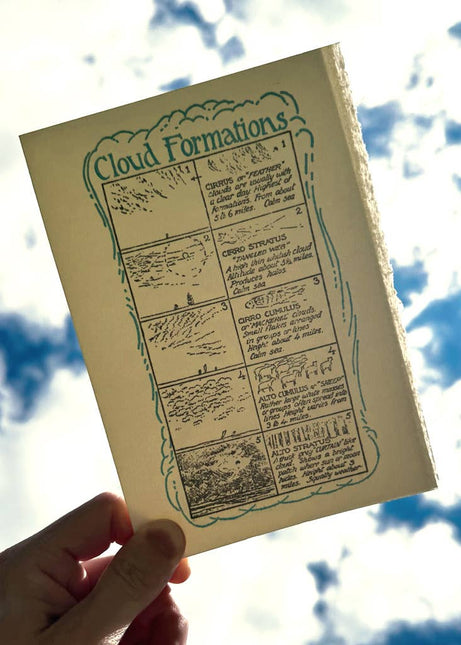 Cloud Formations
1
1
CIRRUS or "FEATHER"
clouds are usually with
a clear day. Highest of
formations. From about
5 to 6 miles. Calm sea
2
2
CIRRO STRATUS
"TANGLED WEB"
A high thin whitish cloud
Altitude about 5½ miles.
Produces halos.
Calm sea.
3
3
CIRRO CUMULUS
or MACKEREL clouds
Small flakes arranged
in groups or lines.
Height about 4 miles.
Calm sea.
4
4
ALTO CUMULUS or "SHEEP"
Rather large white masses
or groups often spread into
lines Height varies from
3 to 4 miles.
5
5
ALTO STRATUS
"CURTAIN" like
cloud. Shows a bright
patch where sun or moon
Height about 3
miles. Squally weather